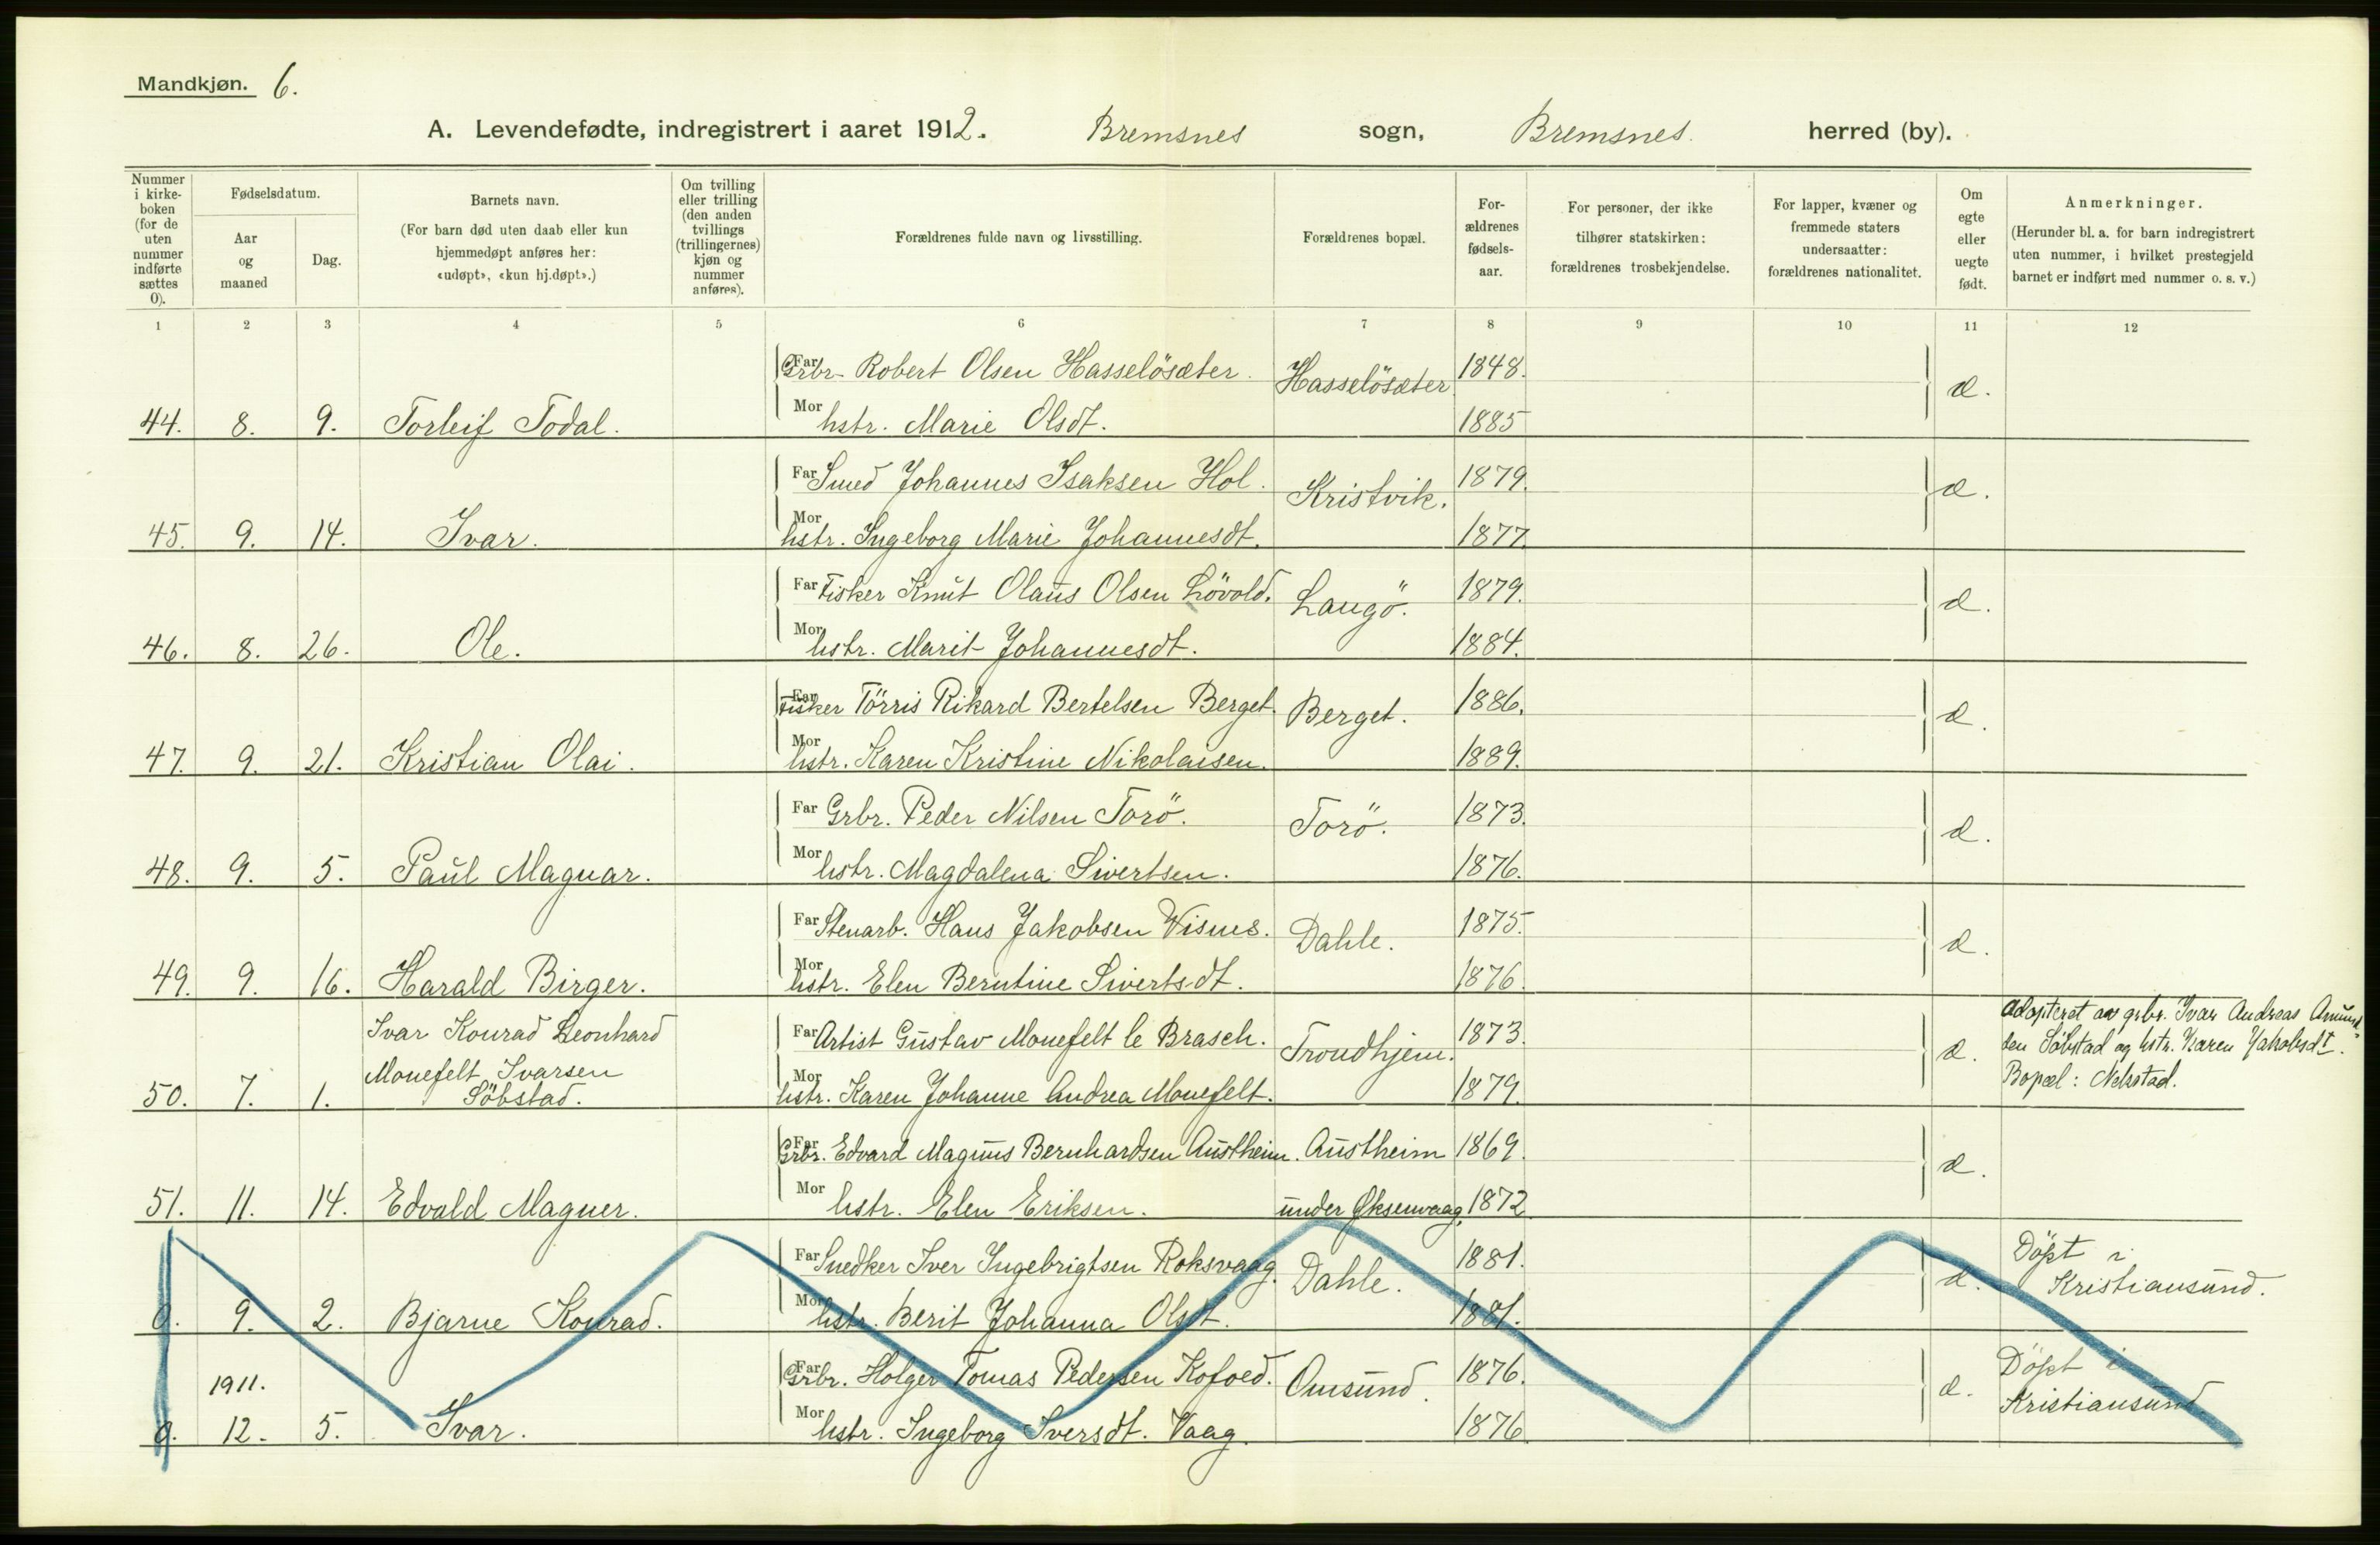 Mandkjøn. 6.
A. Levendefødte, indregistrert i aaret 1912. Bremsnes sogn, Bremsnes. herred (by).
Nummer i kirke-boken (for de uten nummer indførte sættes 0).
Fødselsdatum.
Aar og maaned
Dag.
Barnets navn.
(For barn død uten daab eller kun hjemmedøpt anføres her: «udøpt», «kun hj.døpt».)
Om tvilling eller trilling (den anden tvillings (trillingernes) kjøn og nummer anføres).
Forældrenes fulde navn og livsstilling.
Forældrenes bopæl.
For-ældrenes fødsels-aar.
For personer, der ikke tilhører statskirken: forældrenes trosbekjendelse.
For lapper, kvæner og fremmede staters undersaatter: forældrenes nationalitet.
Om egte eller uegte født.
Anmerkninger.
(Herunder bl. a. for barn indregistrert uten nummer, i hvilket prestegjeld barnet er indført med nummer o. s. v.)
1 2 3 4 5 6 7 8 9 10 11 12
Far Grbr. Robert Olsen Hasselösæter. Hasselösæter 1848. æ.
44. 8. 9. Torleif Todal. Mor hstr. Marie Olsdt. 1885
Far Smed Johannes Isaksen Hol. Kristvik. 1879. æ.
45. 9. 14. Ivar. Mor hstr. Ingeborg Marie Johannesdt. 1877.
Far Fisker Knut Olaus Olsen Lövold. Langö. 1879. æ.
46. 8. 26. Ole. Mor hstr. Marit Johannesdt. 1884.
Far Fisker Törris Rikard Bertelsen Berget. Berget. 1886. æ.
47. 9. 21. Kristian Olai. Mor hstr. Karen Kristine Nikolaisen. 1889.
Far Grbr. Peder Nilsen Torö. Torö. 1873. æ.
48. 9. 5. Paul Magnar. Mor hstr. Magdalena Sivertsen. 1876.
Far Stenarb. Hans Jakobsen Visnes. Dahle. 1875. æ.
49. 9. 16. Harald Birger. Mor hstr. Elen Berntine Sivertsdt. 1876.
Ivar Konrad Leonhard Far Artist Gustav Monefelt le Brasch. Trondhjem. 1873. æ. Adopteret av grbr. Ivar Andreas Amund-
Monefelt Ivarsen sen Söbstad og hstr. Karen Jakobsdt.
50. 7. 1. Söbstad. Mor hstr. Karen Johanne Andrea Monefelt. 1879. Bopæl: Nekstad.
Far Grbr. Edvard Magnus Bernhardsen Austheim. Austheim 1869. æ.
51. 11. 14. Edvald Magner. Mor hstr. Elen Eriksen. under Øksenvaag. 1872.
Far Snedker Iver Ingebrigtsen Roksvaag. Dahle. 1881. æ. Döpt i
0. 9. 2. Bjarne Konrad. Mor hstr. Berit Johanna Olsdt. 1881. Kristiansund.
1911. Far Grbr. Holger Tomas Pedersen Kofoed. Omsund. 1876. æ. Döpt i
0. 12. 5. Ivar. Mor hstr. Ingeborg Iversdt. Vaag. 1876. Kristiansund